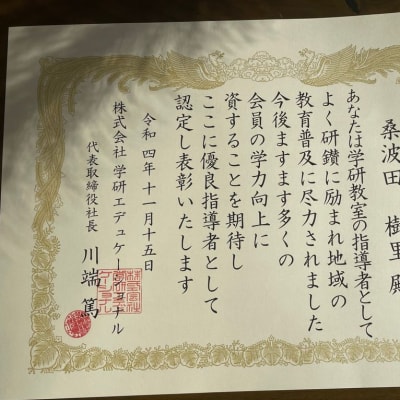 桑波田 樹里 殿
あなたは学研教室の指導者として
よく研鑽に励まれ地域の
教育普及に尽力されました
今後ますます多くの
会員の学力向上に
資することを期待し
ここに優良指導者として
認定し表彰いたします
令和四年十一月十五日
株式会社 学研エデュケーショナル
代表取締役社長 川端 篤